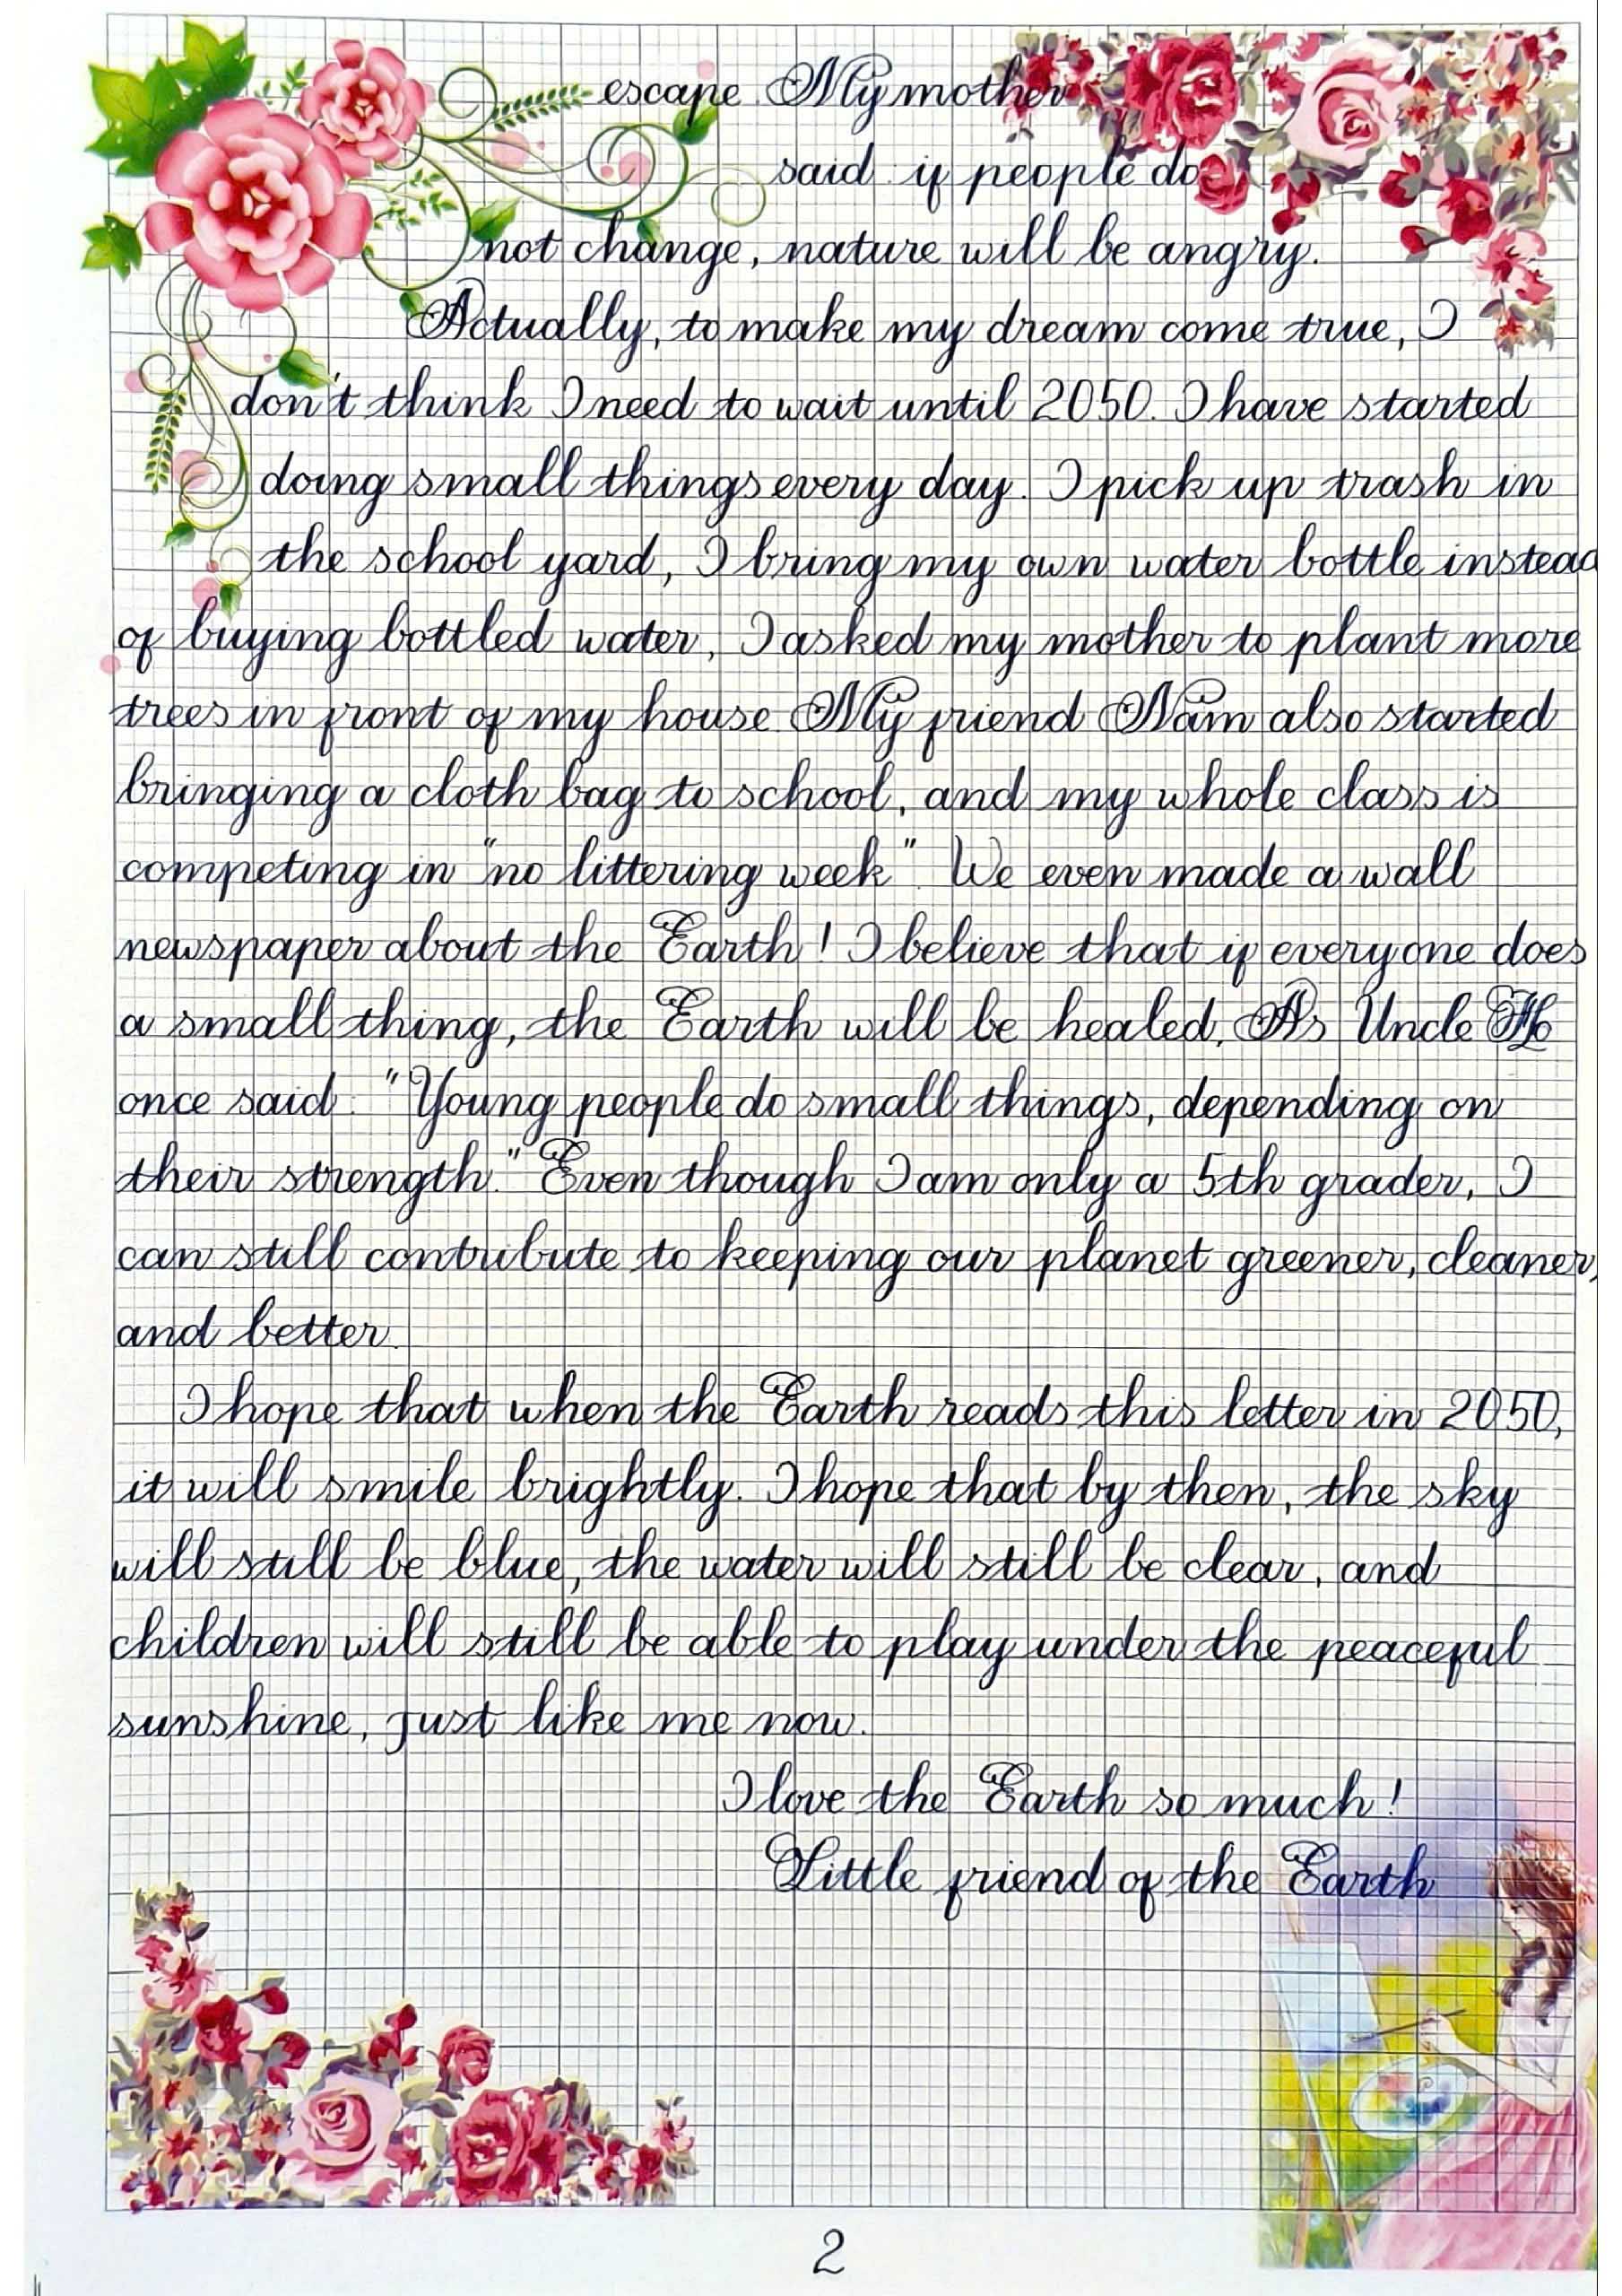 escape. My mother
said: if people do
not change, nature will be angry.
Actually, to make my dream come true, I
don't think I need to wait until 2050. I have started
doing small things every day. I pick up trash in
the school yard, I bring my own water bottle instead
of buying bottled water, I asked my mother to plant more
trees in front of my house. My friend Nam also started
bringing a cloth bag to school, and my whole class is
competing in "no littering week". We even made a wall
newspaper about the Earth! I believe that if everyone does
a small thing, the Earth will be healed. As Uncle Ho
once said: "Young people do small things, depending on
their strength." Even though I am only a 5th grader, I
can still contribute to keeping our planet greener, cleaner,
and better.
I hope that when the Earth reads this letter in 2050,
it will smile brightly. I hope that by then, the sky
will still be blue, the water will still be clear, and
children will still be able to play under the peaceful
sunshine, just like me now.
I love the Earth so much!
Little friend of the Earth
2